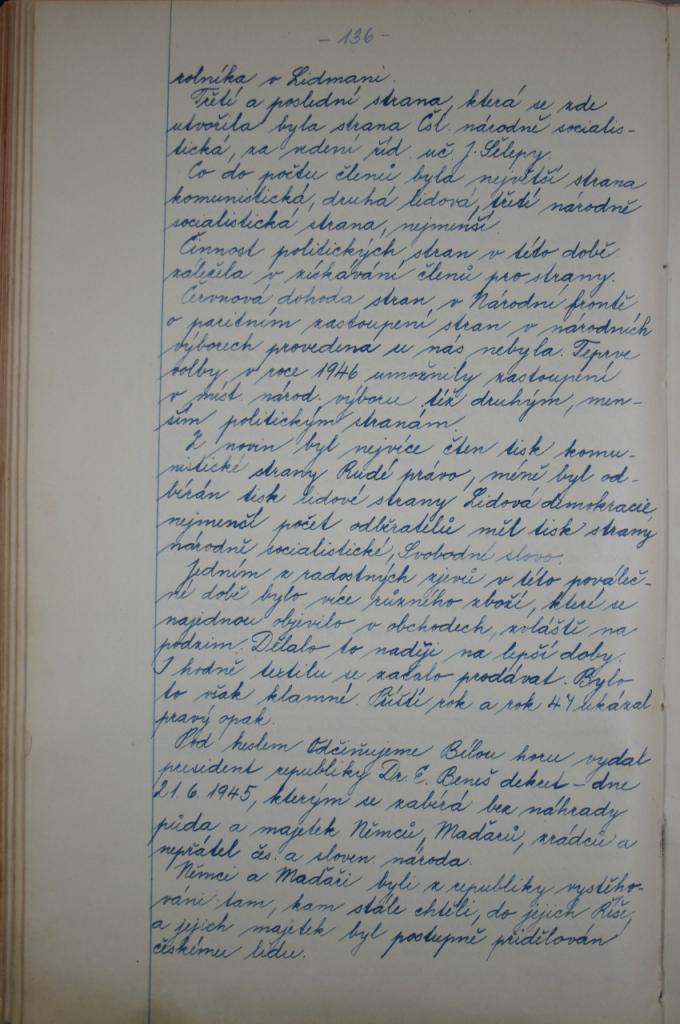 - 136 -
rolníka v Lidmani.
Třetí a poslední strana, která se zde
utvořila byla strana Čsl. národně socialis-
tická, za vedení říd. uč. J. Šelepy.
Co do počtu členů byla největší strana
komunistická, druhá lidová, třetí národně
socialistická strana, nejmenší.
Činnost politických stran v této době
záležela v získávání členů pro strany.
Červnová dohoda stran v Národní frontě
o paritním zastoupení stran v národních
výborech provedena u nás nebyla. Teprve
volby v roce 1946 umožnily zastoupení
v míst. národ. výboru též druhým, men-
ším politickým stranám.
Z novin byl nejvíce čten tisk komu-
nistické strany Rudé právo, méně byl od-
bírán tisk lidové strany Lidová demokracie,
nejmenší počet odběratelů měl tisk strany
národně socialistické, Svobodné slovo.
Jedním z radostných zjevů v této pováleč-
né době bylo více různého zboží, které se
najednou objevilo v obchodech, zvláště na
podzim. Dělalo to naději na lepší doby.
I hodně textilu se začalo prodávat. Bylo
to však klamné. Příští rok a rok 47 ukázal
pravý opak.
Pod heslem Odčiňujeme Bílou horu vydal
president republiky Dr. E. Beneš dekret - dne
21. 6. 1945, kterým se zabírá bez náhrady
půda a majetek Němců, Maďarů, zrádců a
nepřátel čes. a sloven. národa.
Němci a Maďaři byli z republiky vystěho-
váni tam, kam stále chtěli, do jejich Říše,
a jejich majetek byl postupně přidělován
českému lidu.